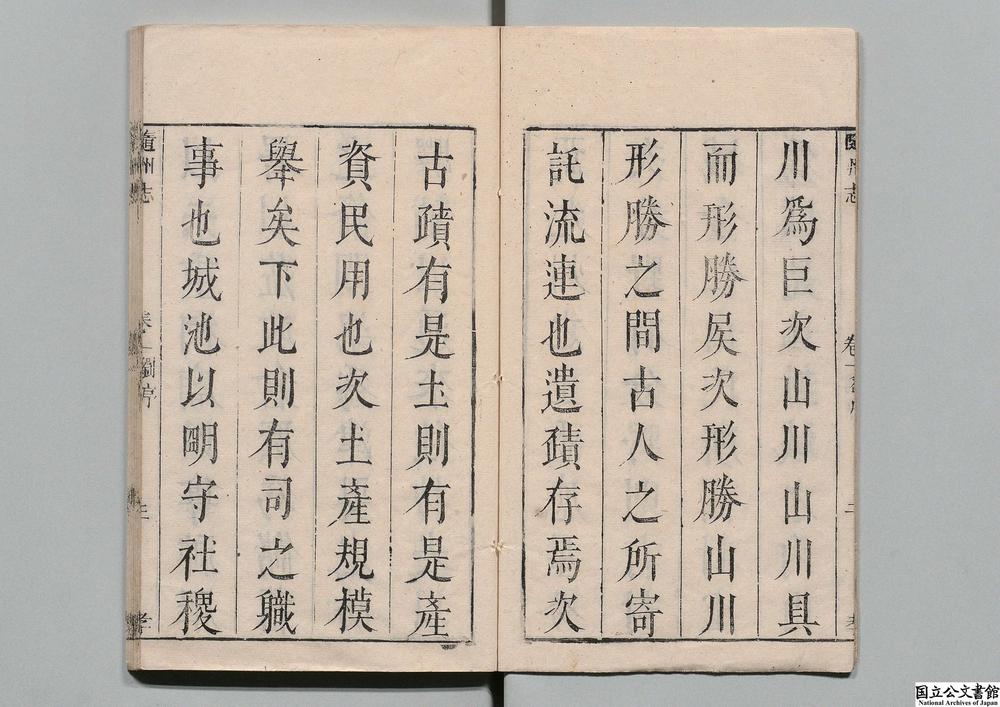 川爲巨次山川山川具
而形勝矦次形勝山川
形勝之間古人之所寄
託流連也遺蹟存焉次
古蹟有是土則有是產
資民用也次土產規模
舉矣下此則有司之職
事也城池以明守社稷
隨州志
国立公文書館
National Archives of Japan